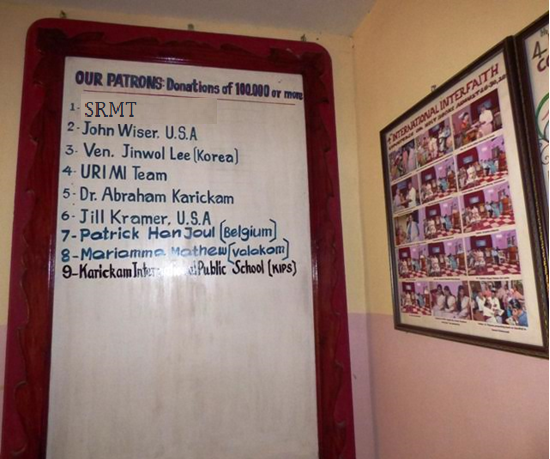 OUR PATRONS: Donations of 100.000 or more
1- SRMT
2- John Wiser. U.S.A
3- Ven. Jinwol Lee (Korea)
4- URI MI Team
5- Dr. Abraham Karickam
6- Jill Kramer, U.S.A
7- Patrick HanJoul (Belgium)
8- Mariamma Mathew (Valakom)
9- Karickam Public School (KIPS)
INTERNATIONAL INTERFAITH